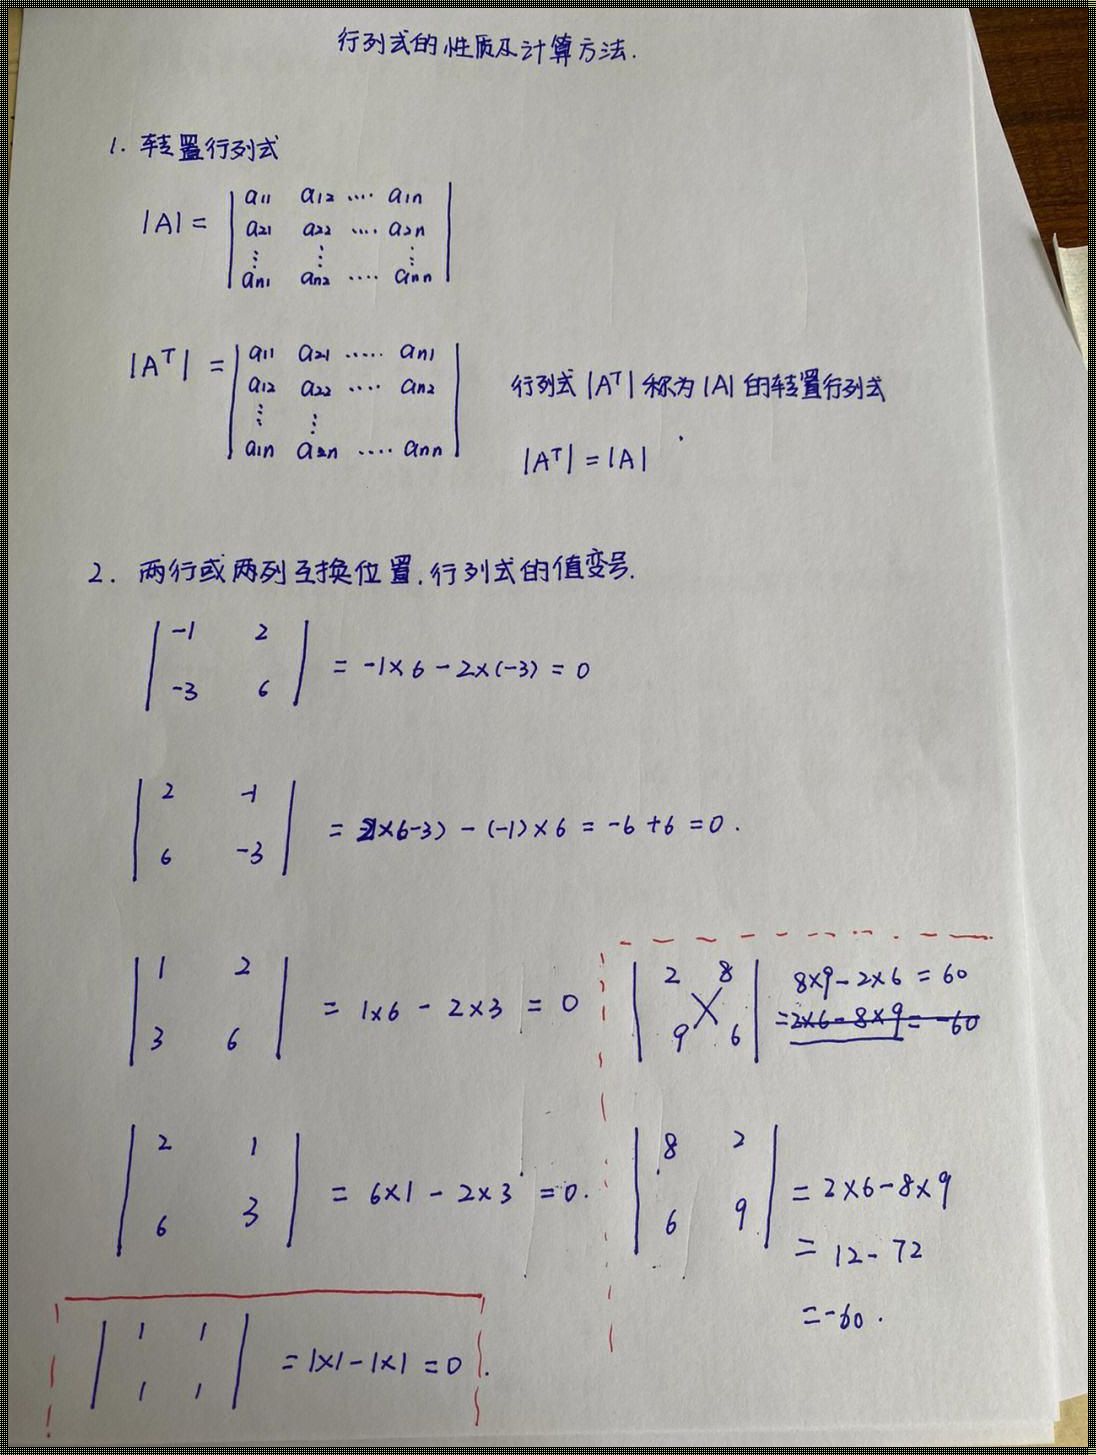 行列式的性质及计算方法.
1. 转置行列式
|A| = | a11 a12 ···· a1n |
| a21 a22 ···· a2n |
| ⋮ ⋮ ⋮ |
| an1 an2 ···· ann |
|Aᵀ| = | a11 a21 ····· an1 |
| a12 a22 ···· an2 |
| ⋮ ⋮ |
| a1n a2n ···· ann |
行列式 |Aᵀ| 称为 |A| 的转置行列式
|Aᵀ| = |A|
2. 两行或两列互换位置.行列式的值变号.
| -1 2 |
| -3 6 | = -1×6 - 2×(-3) = 0
| 2 -1 |
| 6 -3 | = 2×6-3) - (-1)×6 = -6 + 6 = 0 .
| 1 2 |
| 3 6 | = 1×6 - 2×3 = 0
| 2 8 | 8×9 - 2×6 = 60
| 9 6 | = 2×6 - 8×9 = -60
| 2 1 |
| 6 3 | = 6×1 - 2×3 = 0.
| 8 2 |
| 6 9 | = 2×6 - 8×9
= 12 - 72
= -60 .
| 1 1 |
| 1 1 | = 1×1 - 1×1 = 0 .